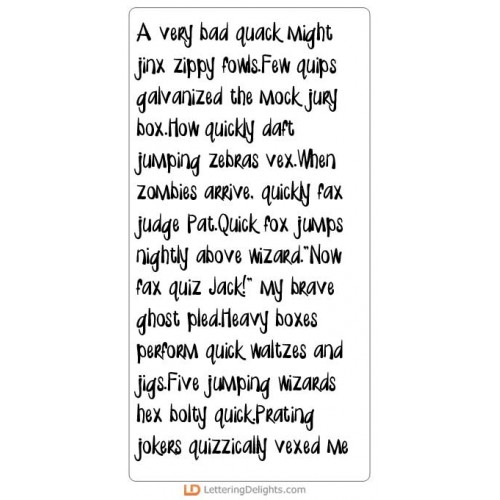 A very bad quack might
jinx zippy fowls.Few quips
galvanized the mock jury
box.How quickly daft
jumping zebras vex.When
zombies arrive, quickly fax
judge Pat.Quick fox jumps
nightly above wizard."Now
fax quiz Jack!" my brave
ghost pled.Heavy boxes
perform quick waltzes and
jigs.Five jumping wizards
hex bolty quick.Prating
jokers quizzically vexed me
LD LetteringDelights.com